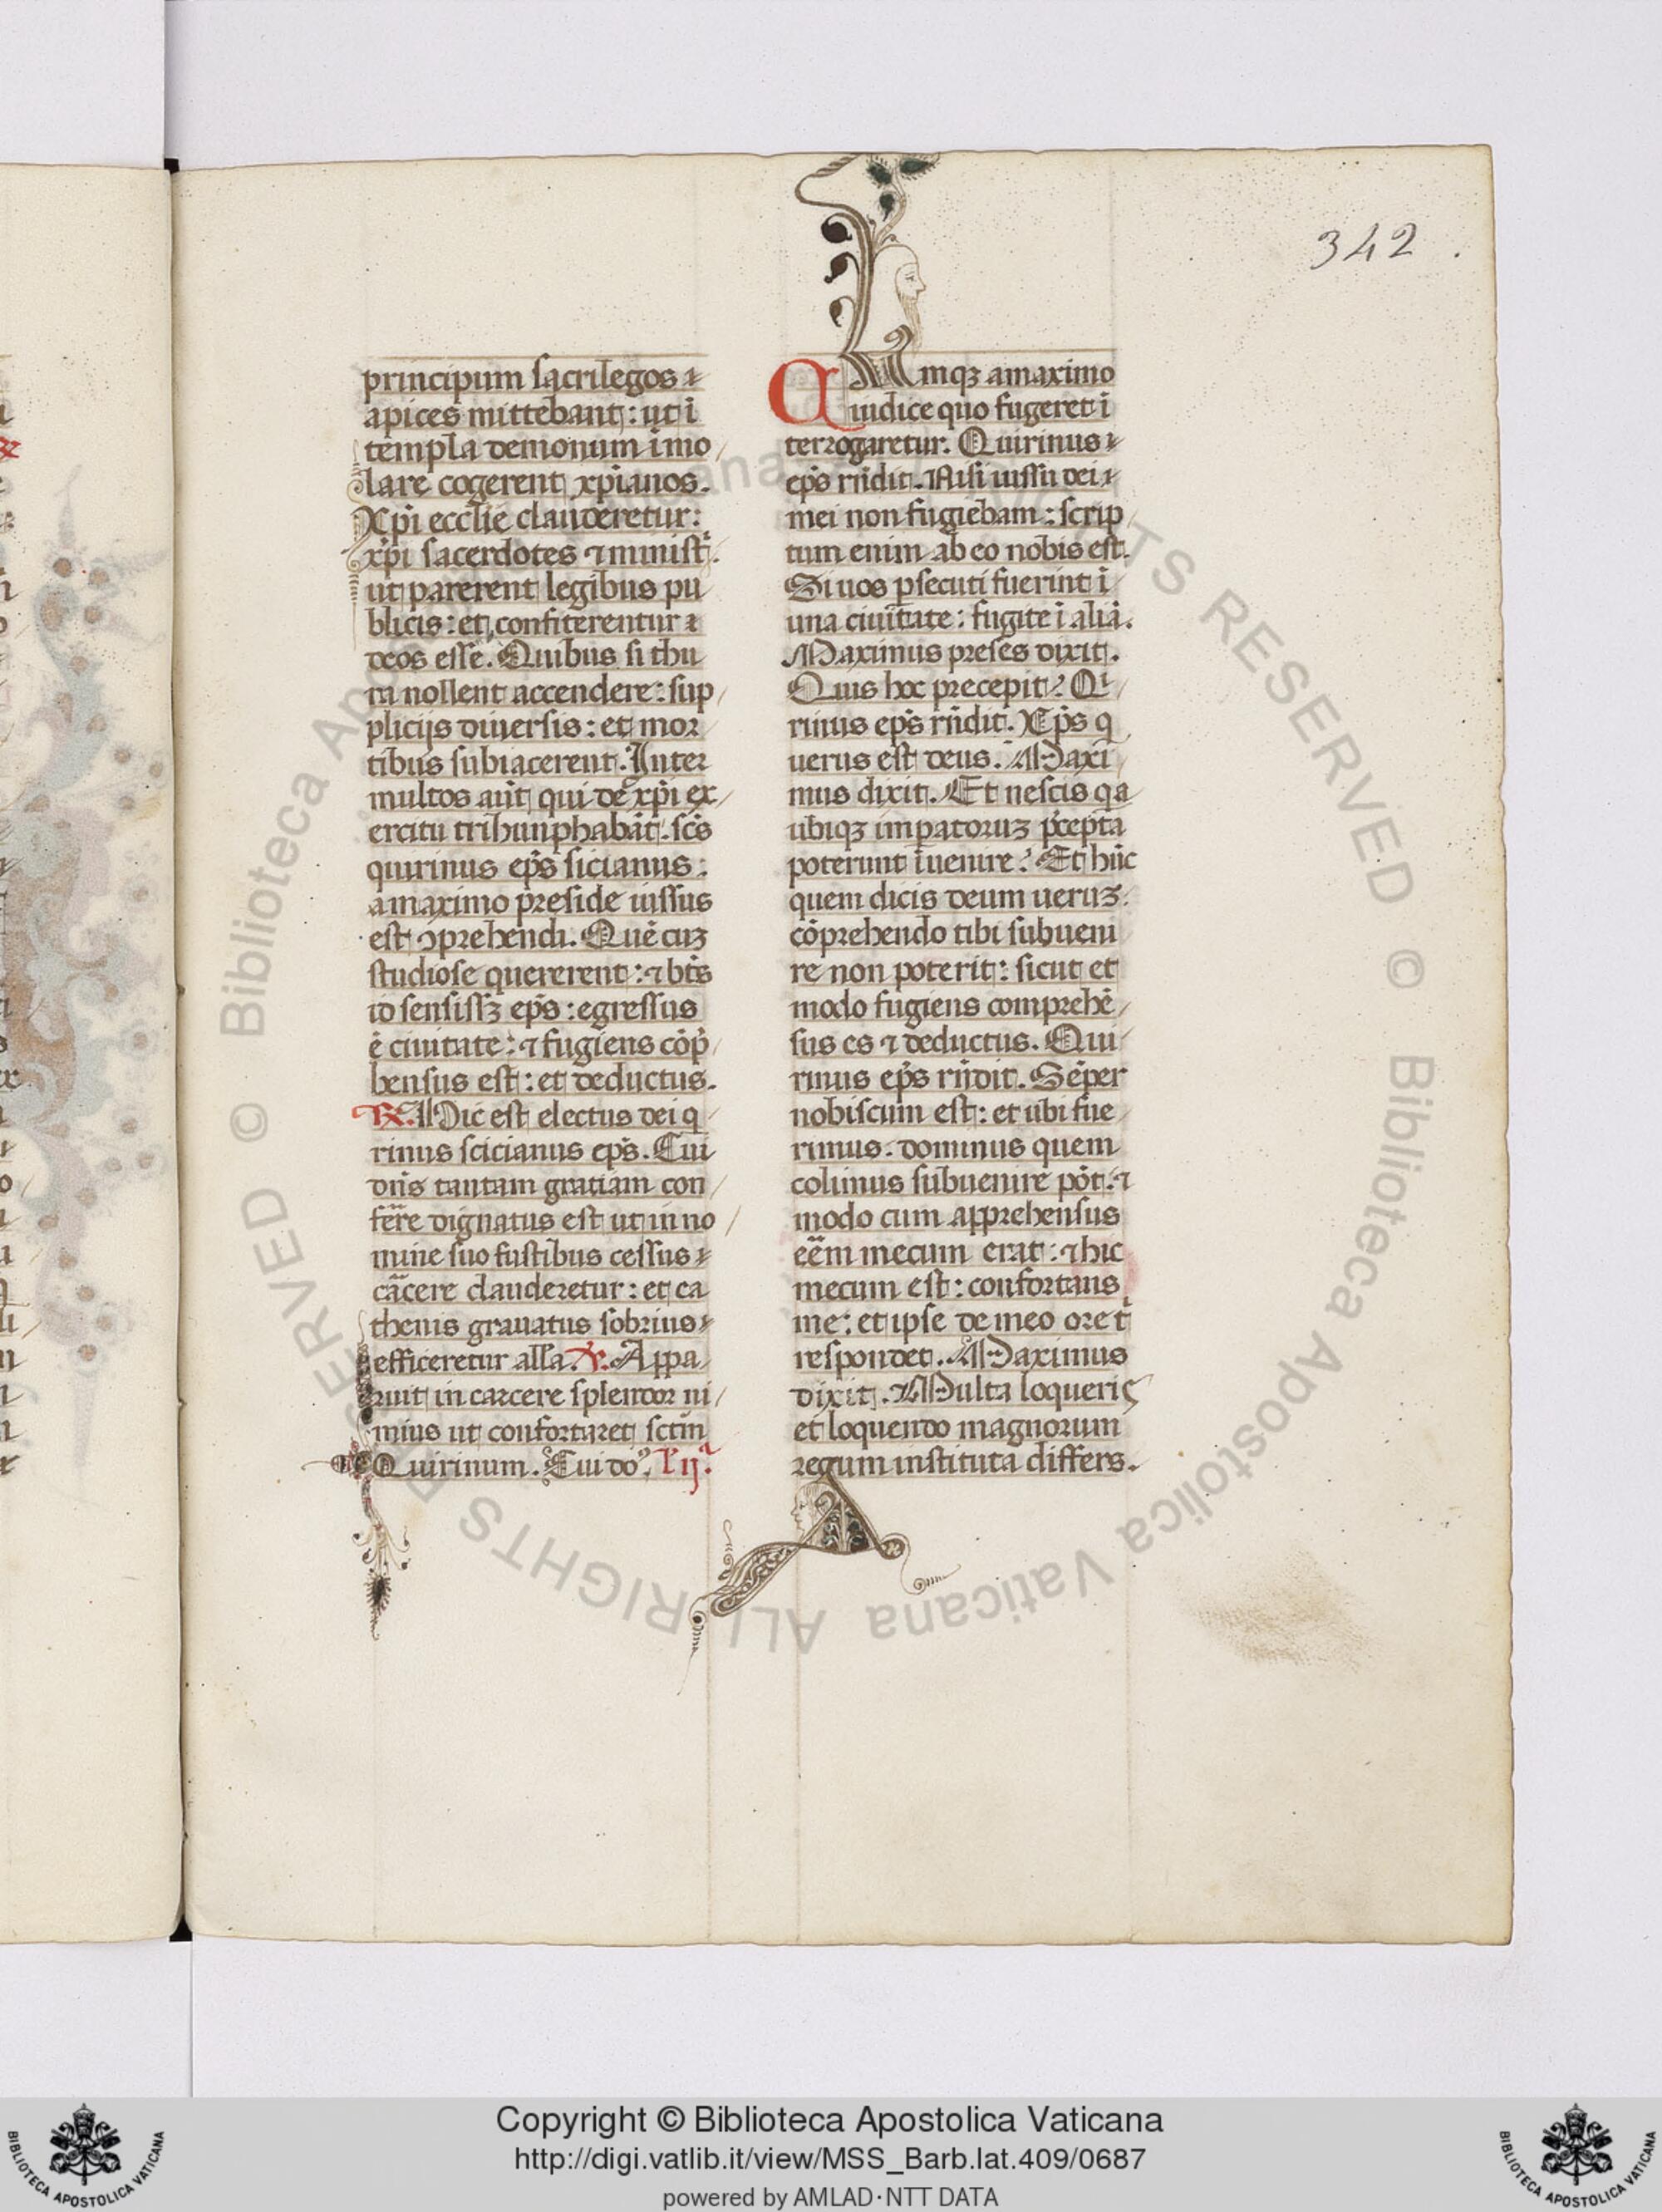 342.
principum sacrilegos
apices mittebant: ut ī
templa demonum īmo
lare cogerent xp̄ianos.
Xp̄i ecclīe clauderetur:
xp̄i sacerdotes ⁊ minist̄.
ut parerent legibus pu
blicis: et confiterentur
deos esse. Quibus si thu
ra nollent accendere: sup
plicijs diuersis: et mor
tibus subiacerent. Inter
multos aūt qui de xp̄i ex
ercitu trihunphabāt. sc̄s
quirinus ep̄s sicianus:
a maximo preside iussus
est ꝯprehendi. Quē cuꝫ
studiose quererent: ⁊ bt̄s
id sensissꝫ ep̄s: egressus
ē ciuitate: ⁊ fugiens cōp̄
hensus est: et deductus.
℞. Hic est electus dei q
rinus scicianus ep̄s. Cui
dn̄s tantam gratiam con
ferre dignatus est ut in no
mine suo fustibus cessus
carcere clauderetur: et ca
thenis grauatus sobrius
efficeretur alla. ℣. Appa
ruit in carcere splendor ni
mius ut confortaret sctm̄
Quirinum. Cui do. l' ij.ᵃ
Cumqꝫ a maximo
iudice quo fugeret ī
terrogaretur. Quirinus
ep̄s rn̄dit. Nisi iussu dei
mei non fugiebam: scrip
tum enim ab eo nobis est.
Si uos ꝑsecuti fuerint ī
una ciuitate: fugite ī aliā.
Maximus preses dixit.
Quis hoc precepit? Qi
rinus ep̄s rn̄dit. Xp̄s q
uerus est deus. Maxi
mus dixit. Et nescis qa
ubiqꝫ imꝑatoruꝫ p̄cepta
poterunt īuenire? Et hūc
quem dicis deum ueruꝫ:
cōprehendo tibi subueni
re non poterit: sicut et
modo fugiens comprehē
sus es ⁊ deductus. Qui
rinus ep̄s rn̄dit. Sēper
nobiscum est: et ubi fue
rimus. dominus quem
colimus subuenire pōt: ⁊
modo cum apprehensus
eēm mecum erat: ⁊ hic
mecum est: confortans
me: et ipse de meo ore t̄
respondet. Maximus
dixit. Multa loqueris
et loquendo magnorum
regum instituta differs.
© Biblioteca Apostolica Vaticana ALL RIGHTS RESERVED
Copyright © Biblioteca Apostolica Vaticana
http://digi.vatlib.it/view/MSS_Barb.lat.409/0687
powered by AMLAD·NTT DATA
BIBLIOTECA APOSTOLICA VATICANA
BIBLIOTECA APOSTOLICA VATICANA